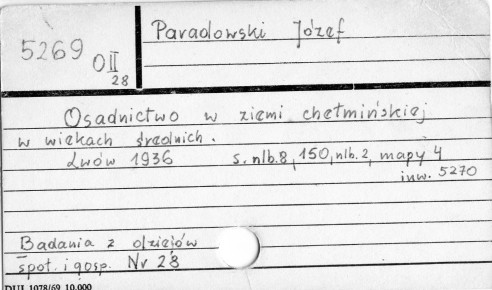 5269 O II 28
Paradowski Józef
Osadnictwo w ziemi chełmińskiej
w wiekach średnich.
Lwów 1936 s. nlb. 8, 150, nlb. 2, mapy 4
inw. 5270
Badania z dziejów
społ. i gosp. Nr 28
DUJ. 1078/69 10.000